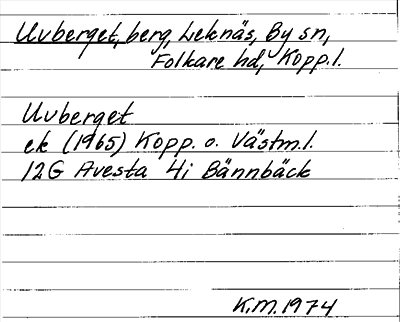 Uvberget, berg, Leknäs, By sn,
Folkare hd, Kopp.l.
Uvberget
ek (1965) Kopp. o. Västm.l.
12G Avesta 4i Bännbäck
K.M. 1974